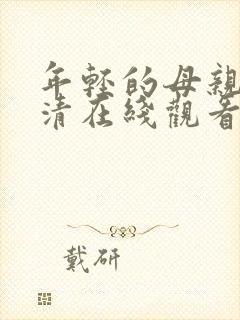 年轻的母亲
清在綫觀看
戴研